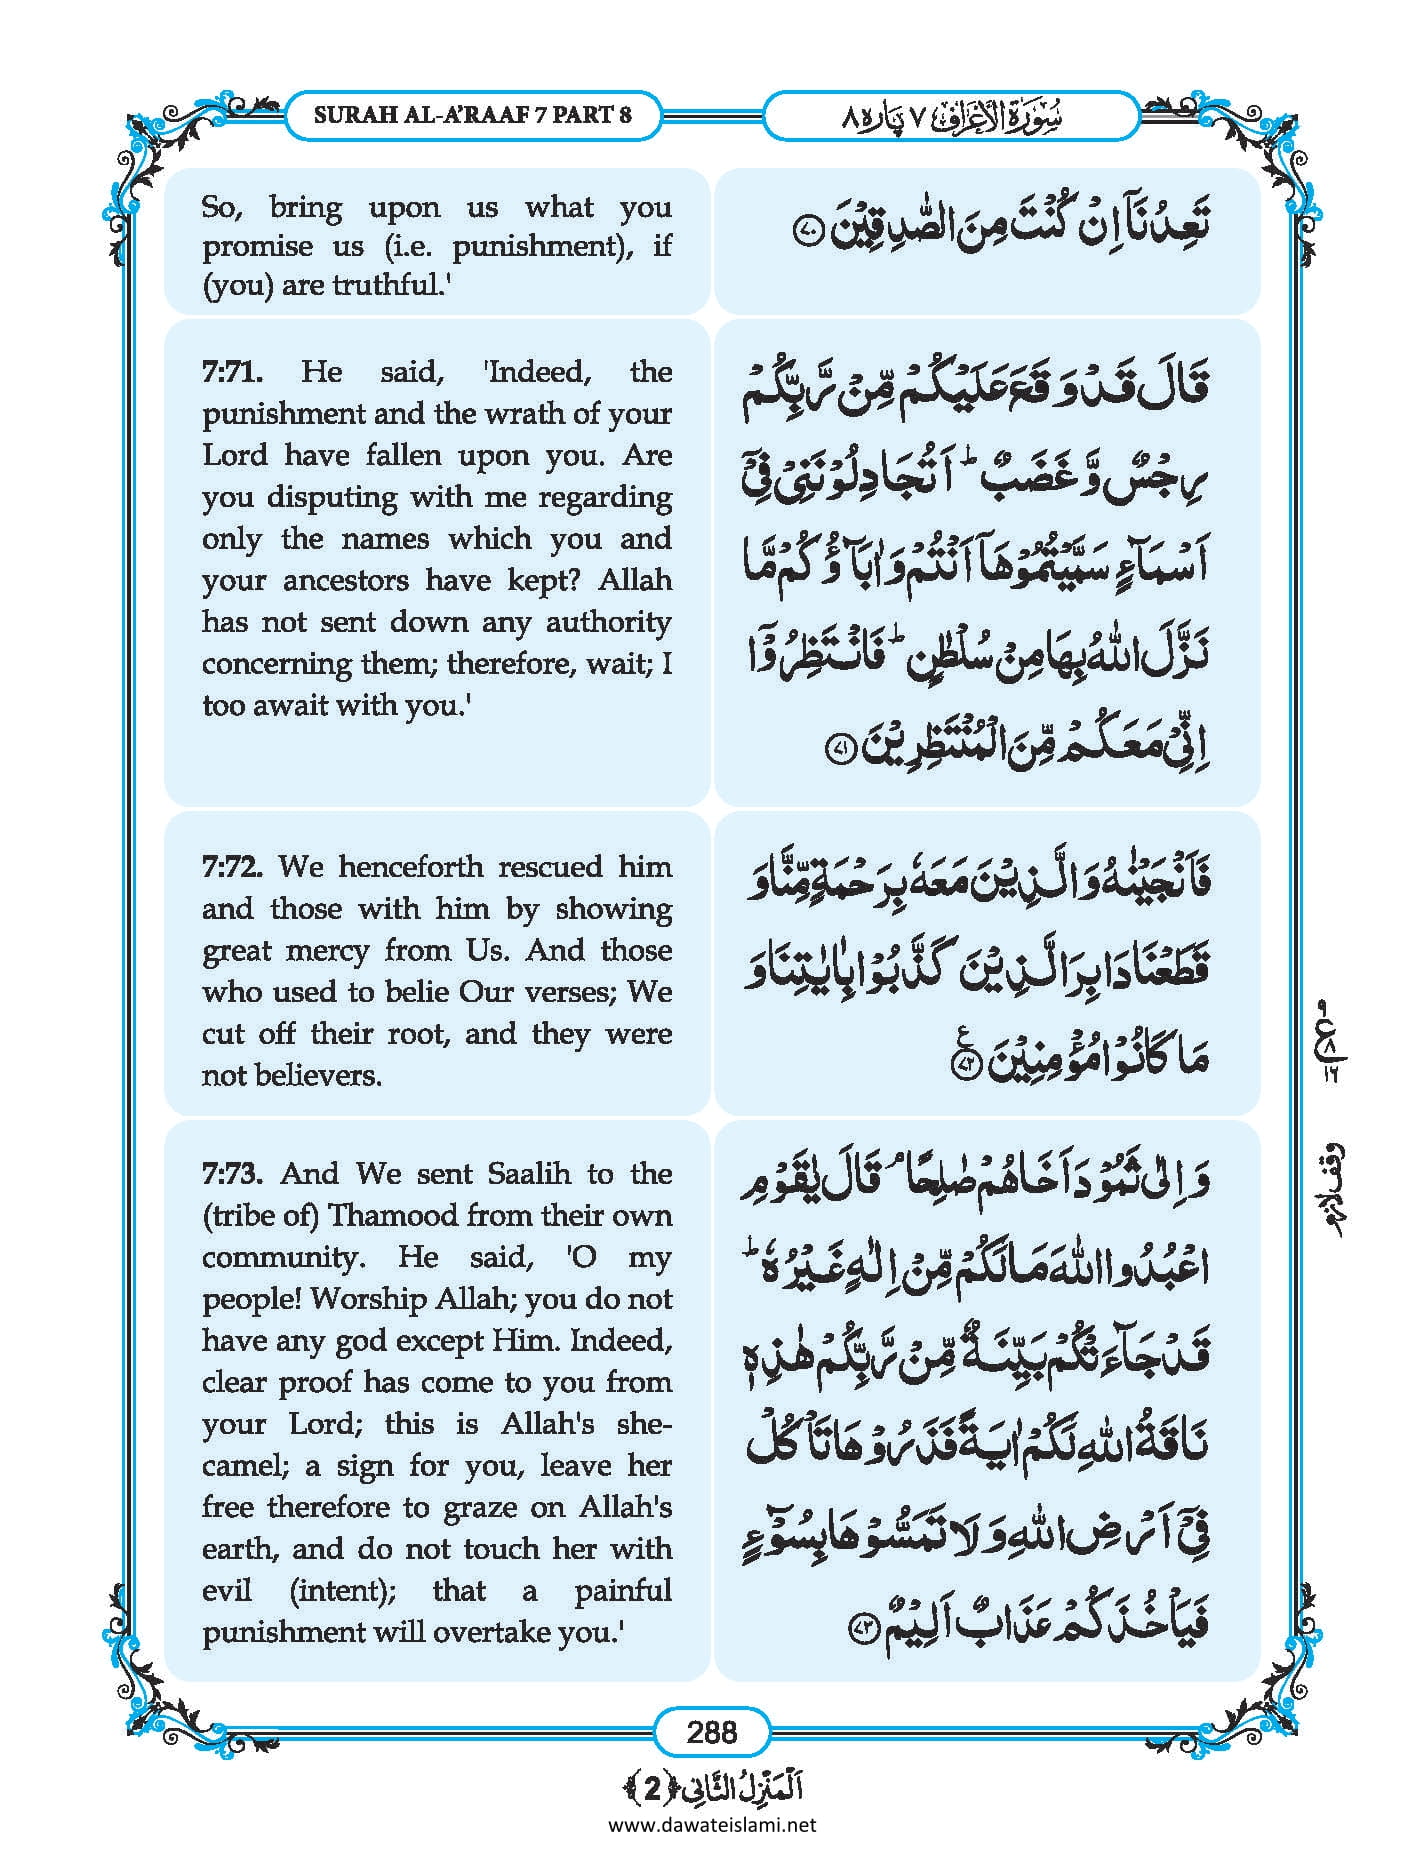 SURAH AL-A'RAAF 7 PART 8
سُوْرَةُ الْاَعْرَاف ٧ پاره ٨
So, bring upon us what you
promise us (i.e. punishment), if
(you) are truthful.'
تَعِدُنَاۤ اِنْ كُنْتَ مِنَ الصّٰدِقِیْنَ ﴿۷۰﴾
7:71. He said, 'Indeed, the
punishment and the wrath of your
Lord have fallen upon you. Are
you disputing with me regarding
only the names which you and
your ancestors have kept? Allah
has not sent down any authority
concerning them; therefore, wait; I
too await with you.'
قَالَ قَدْ وَقَعَ عَلَیْكُمْ مِّنْ رَّبِّكُمْ
رِجْسٌ وَّ غَضَبٌ ؕ اَتُجَادِلُوْنَنِیْ فِیْۤ
اَسْمَآءٍ سَمَّیْتُمُوْهَاۤ اَنْتُمْ وَ اٰبَآؤُكُمْ مَّا
نَزَّلَ اللّٰهُ بِهَا مِنْ سُلْطٰنٍ ؕ فَانْتَظِرُوْۤا
اِنِّیْ مَعَكُمْ مِّنَ الْمُنْتَظِرِیْنَ ﴿۷۱﴾
7:72. We henceforth rescued him
and those with him by showing
great mercy from Us. And those
who used to belie Our verses; We
cut off their root, and they were
not believers.
فَاَنْجَیْنٰهُ وَ الَّذِیْنَ مَعَهٗ بِرَحْمَةٍ مِّنَّا وَ
قَطَعْنَا دَابِرَ الَّذِیْنَ كَذَّبُوْا بِاٰیٰتِنَا وَ
مَا كَانُوْا مُؤْمِنِیْنَ ﴿۷۲﴾ ع
٩
ع ٨
١٦
7:73. And We sent Saalih to the
(tribe of) Thamood from their own
community. He said, 'O my
people! Worship Allah; you do not
have any god except Him. Indeed,
clear proof has come to you from
your Lord; this is Allah's she-
camel; a sign for you, leave her
free therefore to graze on Allah's
earth, and do not touch her with
evil (intent); that a painful
punishment will overtake you.'
وَ اِلٰى ثَمُوْدَ اَخَاهُمْ صٰلِحًا ۘ قَالَ یٰقَوْمِ
اعْبُدُوا اللّٰهَ مَا لَكُمْ مِّنْ اِلٰهٍ غَیْرُهٗ ؕ
قَدْ جَآءَتْكُمْ بَیِّنَةٌ مِّنْ رَّبِّكُمْ هٰذِهٖ
نَاقَةُ اللّٰهِ لَكُمْ اٰیَةً فَذَرُوْهَا تَاْكُلْ
فِیْۤ اَرْضِ اللّٰهِ وَ لَا تَمَسُّوْهَا بِسُوْٓءٍ
فَیَاْخُذَكُمْ عَذَابٌ اَلِیْمٌ ﴿۷۳﴾
وقف لازم
288
اَلْمَنْزِلُ الثَّانِی ﴿2﴾
www.dawateislami.net